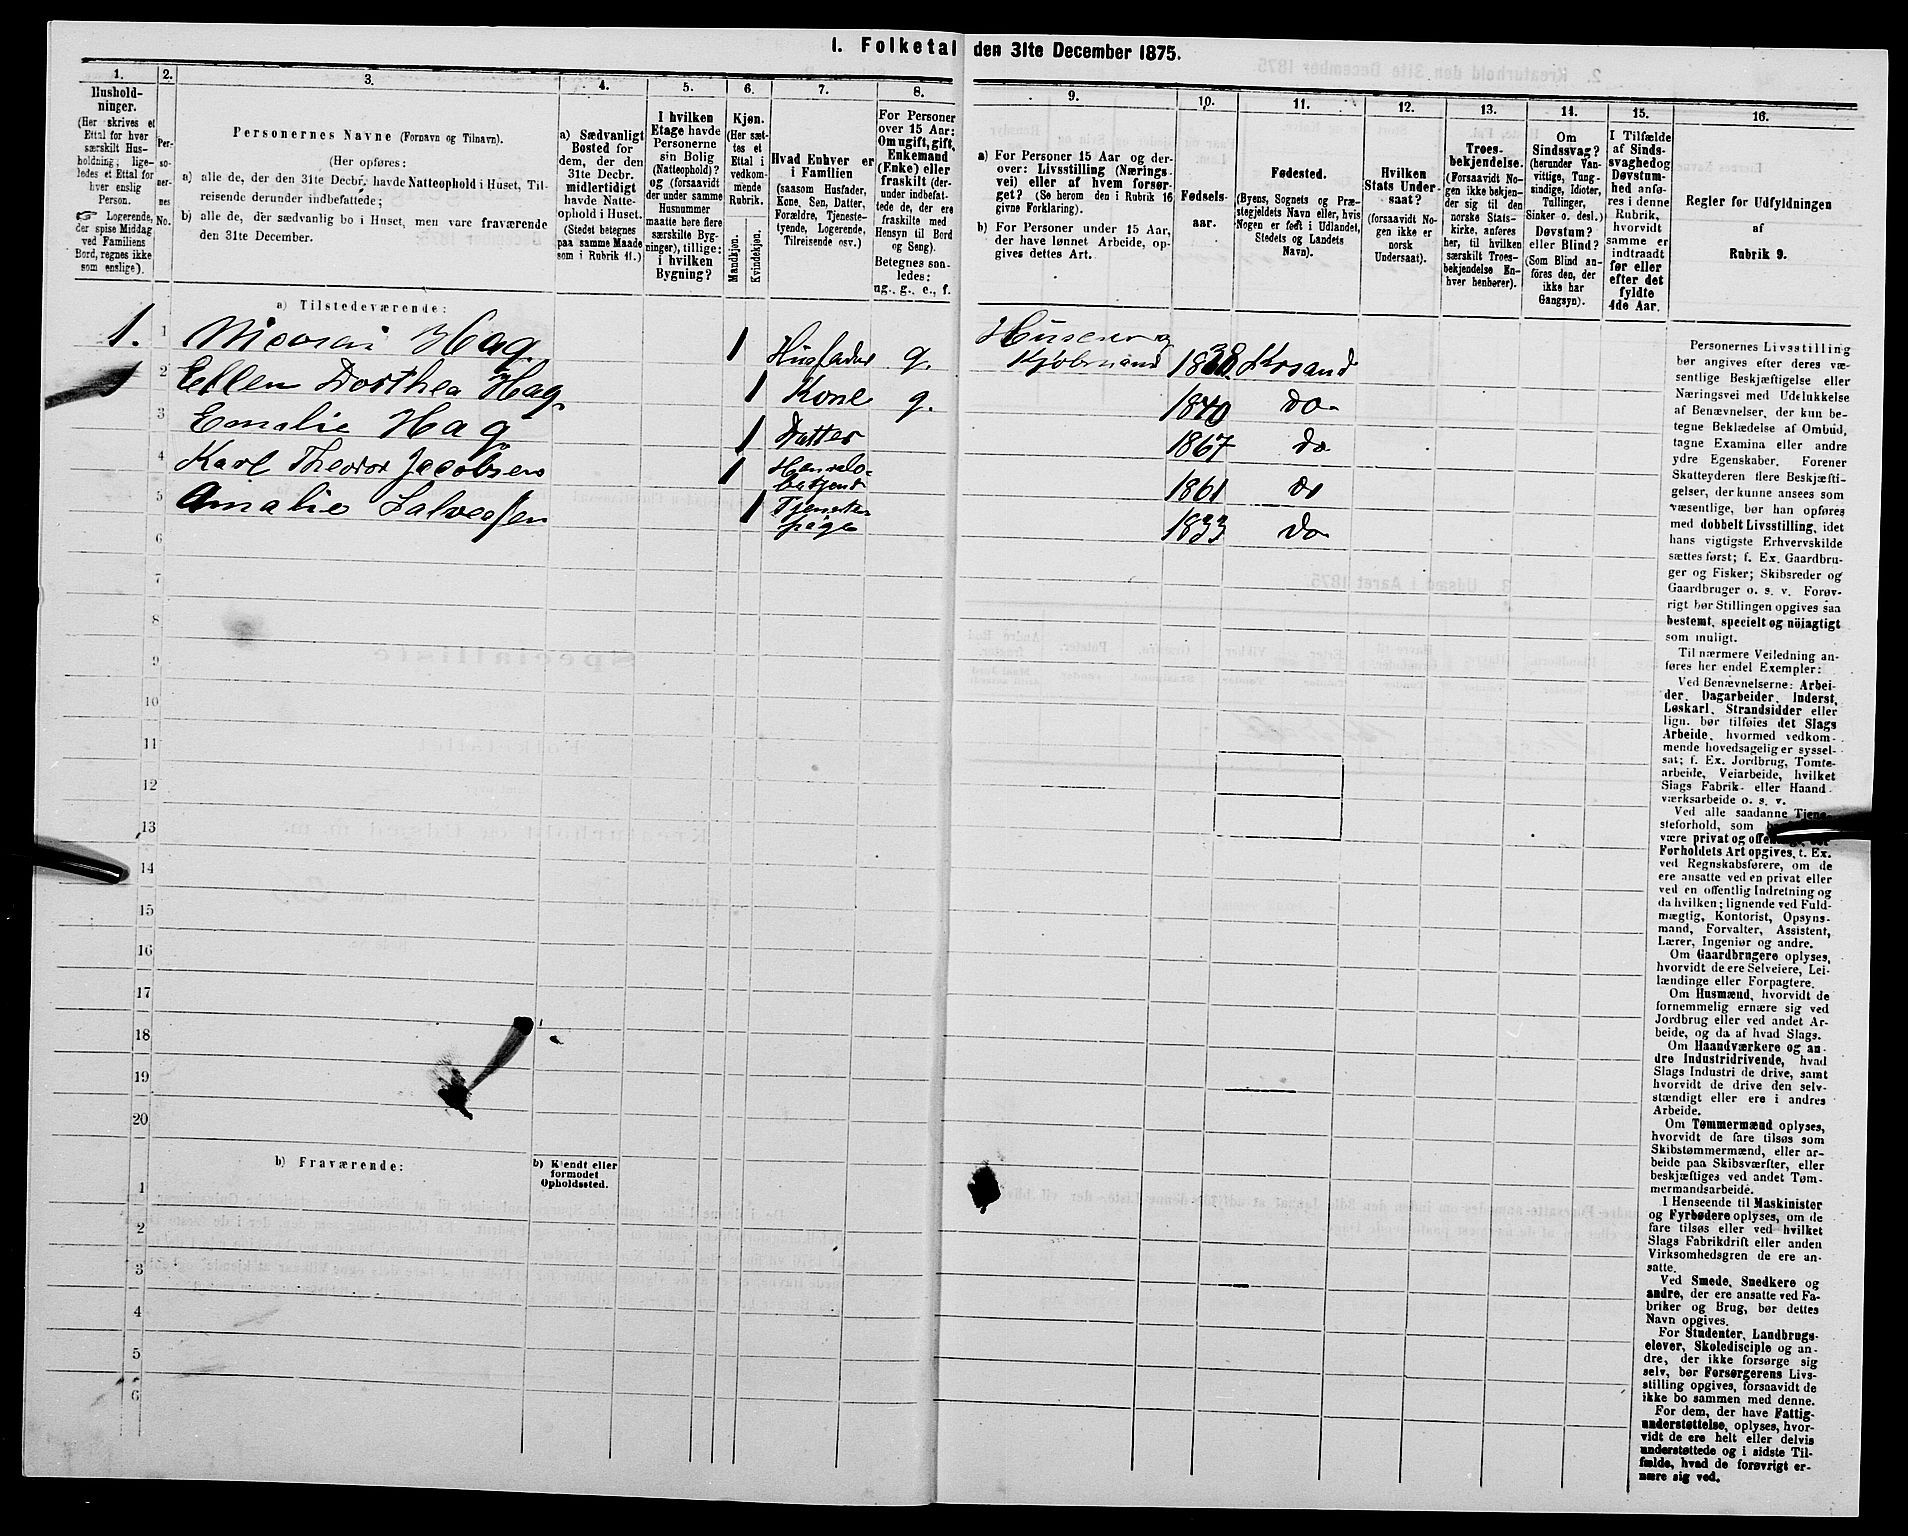 1. Folketal den 31te December 1875.
1.
Hushold-
ninger.
(Her skrives et
Ettal for hver
særskilt Hus-
holdning; lige-
ledes et Ettal for
hver enslig
Person.
☞ Logerende,
der spise Middag
ved Familiens
Bord, regnes ikke
som enslige).
2.
Per-
so-
ner-
nes
No.
3.
Personernes Navne (Fornavn og Tilnavn).
(Her opføres:
a) alle de, der den 31te Decbr. havde Natteophold i Huset, Til-
reisende derunder indbefattede;
b) alle de, der sædvanlig bo i Huset, men vare fraværende
den 31te December.
4.
a) Sædvanligt
Bosted for
dem, der den
31te Decbr.
midlertidigt
havde Natte-
ophold i Huset.
(Stedet betegnes
paa samme Maade
som i Rubrik 11.)
5.
I hvilken
Etage havde
Personerne
sin Bolig
(Natteophold)?
og (forsaavidt
der under
samme
Husnummer
maatte høre flere
særskilte Byg-
ninger), tillige:
i hvilken
Bygning?
6.
Kjøn.
(Her sæt-
tes et
Ettal i
vedkom-
mende
Rubrik.
Mandkjøn.
Kvindekjøn.
7.
Hvad Enhver er
i Familien
(saasom Husfader,
Kone, Søn, Datter,
Forældre, Tjeneste-
tyende, Logerende,
Tilreisende osv.)
8.
For Personer
over 15 Aar:
Om ugift, gift,
Enkemand
(Enke) eller
fraskilt (der-
under indbefat-
tede de, der ere
fraskilte med
Hensyn til Bord
og Seng).
Betegnes saa-
ledes:
ug., g., e., f.
9.
a) For Personer 15 Aar og der-
over: Livsstilling (Nærings-
vei) eller af hvem forsør-
get? (Se herom den i Rubrik 16
givne Forklaring).
b) For Personer under 15 Aar,
der have lønnet Arbeide, op-
gives dettes Art.
10.
Fødsels-
aar.
11.
Fødested.
(Byens, Sognets og Præ-
stegjeldets Navn eller, hvis
Nogen er født i Udlandet,
Stedets og Landets
Navn).
12.
Hvilken
Stats Under-
saat?
(forsaavidt No-
gen ikke er
norsk
Undersaat).
13.
Troes-
bekjendelse.
(Forsaavidt No-
gen ikke bekjen-
der sig til den
norske Stats-
kirke, anføres
her, til hvilken
særskilt Troes-
bekjendelse En-
hver henhører).
14.
Om
Sindssvag?
(herunder Van-
vittige, Tung-
sindige, Idioter,
Tullinger,
Sinker o. desl.)
Døvstum?
eller Blind?
(Som Blind an-
føres den, der
ikke har
Gangsyn).
15.
I Tilfælde
af Sinds-
svaghed og
Døvstum-
hed anfø-
res i denne
Rubrik,
hvorvidt
samme er
indtraadt
før eller
efter det
fyldte
4de Aar.
16.
Regler for Udfyldningen
af
Rubrik 9.
a) Tilstedeværende:
1. 1 Nicolai Hag. 1 Husfader g. Huseier og
Kjøbmand 1838 Krsand
2 Ellen Dorthea Hag. 1 Kone g. 1840 do
3 Emalie Hag 1 Datter 1867 do
4 Karl Theodor Jacobsen 1 Handels-
betjent 1861 do
5 Amalie Salvessen 1 Tjeneste-
pige 1833 do
6
7
8
9
10
11
12
13
14
15
16
17
18
19
20
b) Fraværende:
b) Kjendt eller
formodet
Opholdssted.
1
2
3
4
5
6
Personernes Livsstilling
bør angives efter deres væ-
sentlige Beskjæftigelse eller
Næringsvei med Udelukkelse
af Benævnelser, der kun be-
tegne Beklædelse af Ombud,
tagne Examina eller andre
ydre Egenskaber. Forener
Skatteyderen flere Beskjæfti-
gelser, der kunne ansees som
væsentlige, bør han opføres
med dobbelt Livsstilling, idet
hans vigtigste Erhvervskilde
sættes først; f. Ex. Gaardbru-
ger og Fisker; Skibsreder og
Gaardbruger o. s. v. Forøv-
rigt bør Stillingen opgives saa
bestemt, specielt og nöiagtigt
som muligt.
Til nærmere Veiledning an-
føres her endel Exempler:
Ved Benævnelserne: Arbei-
der, Dagarbeider, Inderst,
Løskarl, Strandsidder eller
lign. bør tilføies det Slags
Arbeide, hvormed vedkom-
mende hovedsagelig er syssel-
sat; f. Ex. Jordbrug, Tomte-
arbeide, Veiarbeide, hvilket
Slags Fabrik- eller Haand-
værksarbeide o. s. v.
Ved alle saadanne Tjene-
steforhold, som
være privat og
Forholdets Art opgives, t. Ex.
ved Regnskabsførere, om de
ere ansatte ved en privat eller
ved en offentlig Indretning og
da hvilken; lignende ved Fuld-
mægtig, Kontorist, Opsyns-
mand, Forvalter, Assistent,
Lærer, Ingeniør og andre.
Om Gaardbrugere oplyses,
hvorvidt de ere Selveiere, Lei-
lændinge eller Forpagtere.
Om Husmænd, hvorvidt de
fornemmelig ernære sig ved
Jordbrug eller ved andet Ar-
beide, og da af hvad Slags.
Om Haandværkere og an-
dre Industridrivende, hvad
Slags Industri de drive, samt
hvorvidt de drive den selv-
stændigt eller ere i andres
Arbeide.
Om Tømmermænd oplyses,
hvorvidt de fare tilsøs som
Skibstømmermænd, eller ar-
beide paa Skibsværfter, eller
beskjæftiges ved andet Tøm-
mermandsarbeide.
I Henseende til Maskinister
og Fyrbødere oplyses, om de
fare tilsøs eller ved hvilket
Slags Fabrikdrift eller anden
Virksomhedsgren de ere an-
satte.
Ved Smede, Snedkere og
andre, der ere ansatte ved Fa-
briker og Brug, bør dettes
Navn opgives.
For Studenter, Landbrugs-
elever, Skoledisciple og an-
dre, der ikke forsørge sig
selv, bør Forsørgerens Livs-
stilling opgives, forsaavidt de
ikke bo sammen med denne.
For dem, der have Fattig-
understøttelse, oplyses, hvor-
vidt de ere helt eller delvis
understøttede og i sidste Til-
fælde, hvad de forøvrigt er-
nære sig ved.